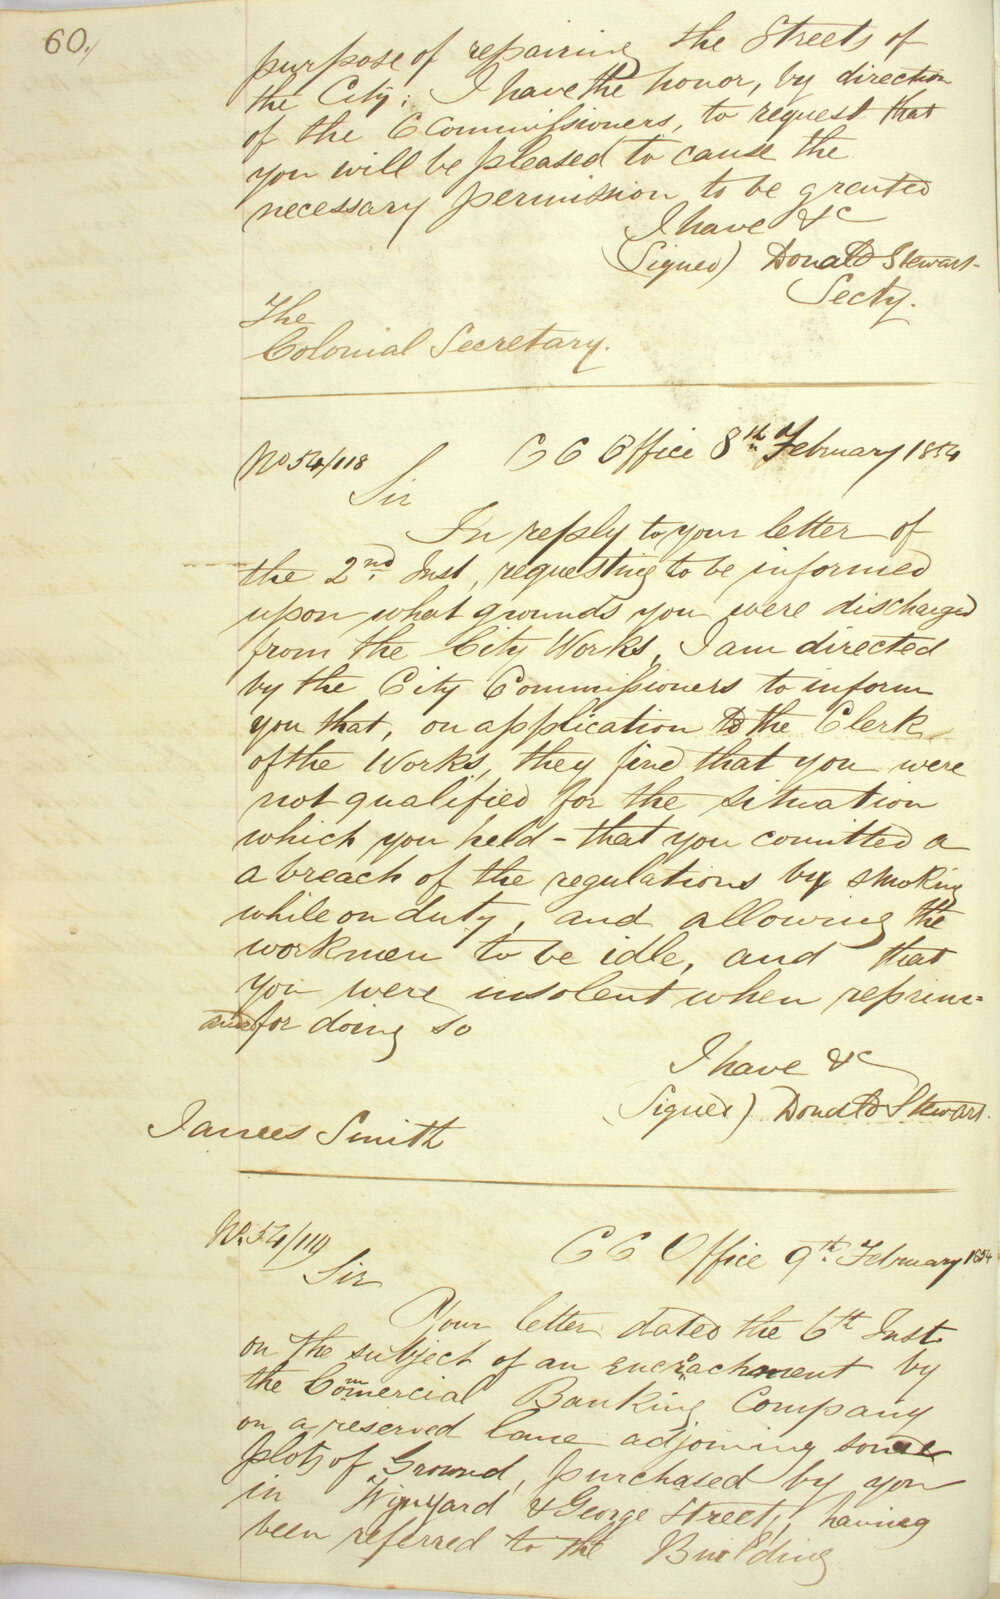 60./
purpose of repairing the Streets of
the City; I have the honor, by direction
of the Commissioners, to request that
you will be pleased to cause the
necessary permission to be granted
I have &c
(Signed) Donald Stewart
Secty.
The
Colonial Secretary.
No 54/118
C C Office 8th February 1854
Sir
In reply to your letter of
the 2nd Inst, requesting to be informed
upon what grounds you were discharged
from the City Works, I am directed
by the City Commissioners to inform
you that, on application to the Clerk
of the Works, they find that you were
not qualified for the situation
which you held - that you comitted a
a breach of the regulations by smoking
while on duty, and allowing the
workmen to be idle, and that
you were insolent when reprim=
anded for doing so
I have &c
(Signed) Donald Stewart
James Smith
No. 54/119
C C Office 9th February 1854
Sir
Your letter dated the 6th Inst.
on the subject of an encroachment by
the Commercial Banking Company
on a reserved lane adjoining some
plots of Ground, purchased by you
in Wynyard & George Street, having
been referred to the Building